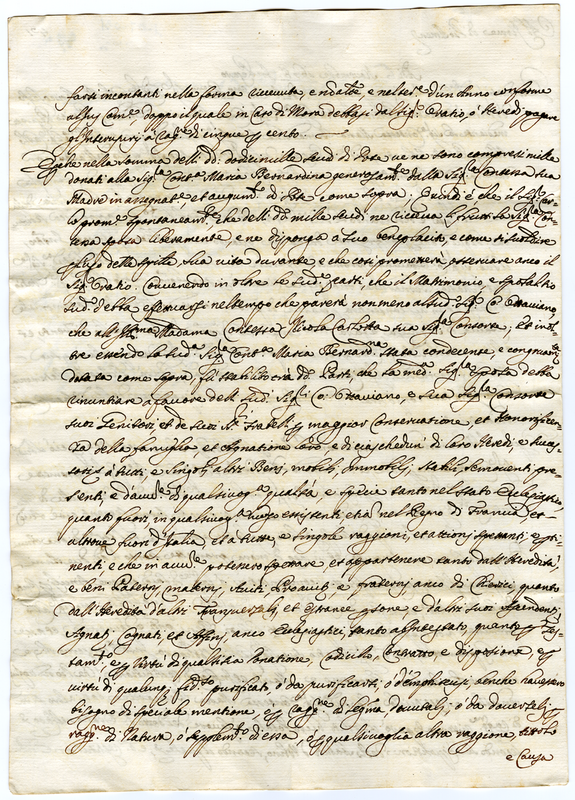 farsi in contanti nella forma ricevuta, e nel d'un Anno conforme
doppo il quale in caso di Mora debbasi dal Sig.r Oratio, ó Heredi pagare
gl'Interusurij a rag.e di cinque p cento.
E che nella somma delli dd.i dodici milla scudi di Dote ve ne sono compresi mille
donati alla Sig.ra Cont.a Maria Bernardina generosam.te della Sig.ra Contessa sua
Madre in assegnat.e et augum.to di Dote come sopra. Quindi è che il Sig.r
prom.e spontaneam.e che delli dd.i mille scudi ne riceva i frutti la Sig.ra
liberamente, e ne disponga a suo beneplacito, e come di
della sua vita durante e che così prometterà osservare anco il
Sig.r Oratio. Convenendo in oltre le sud.e parti, che il Matrimonio, e sposalitio
sud.o debba effettuarsi nel tempo che parerà non meno al sud.o Sig.r C. Ottaviano,
che all'Ill.ma Madama Contessa Nicola Carlotta sua Sig.ra Consorte; Et inol-
tre essendo la sud.a Sig.ra Cont.a Maria Bernard.na stata condecente, e congruam.te
dotata come sopra, fù stabilito trà dd.e Parti, che la med.a Sig.ra Sposa debba
rinuntiare à favore delli Sud.i Sig.ri C. Ottaviano, e sua Sig.ra Consorte
suoi Genitori et de suoi SS.ri Fratelli p maggior Conservatione, et Honorificen-
za della famiglia et Agnatione loro, e di ciaschedun' di loro Heredi, e succes-
sori à tutti, e singoli altri Beni, mobili, Immobili, stabili, semoventi, pre-
senti, e d'avve.re di qualsivog.a qualità, e specie tanto nel stato Ecclesiastico,
quanti fuori in qualsivog.a luogo essistenti etiã nel Regno di Francia, et
altrove fuori d'Italia, et a tutte, e singole raggioni, et attioni spettanti e perti-
nenti e che in avve.re potessero spettare, et appartenere tanto dall'Heredità,
e beni Paterni, materni, Aviti, Proaviti, e fraterni anco di Chierici, quanto
dall'Heredità d'altri Transversali, et estranee psone, e d'altri suoi Ascendenti,
Agnati, Cognati, et Affini, anco Ecclesiastici, tanto ab intestato, quanto p Tes-
tam.to, e p Virtù di qualsisia Donatione, Codicilo, Contratto, e dispositione, e p
virtù di qualunq. fid.so purificato, ó da purificarsi, ó d'emphiteusi, benche n'havesse
bisogno di speciale mentione, e p cag.ne di legitima, dovutali, ó da doverseli p
rag.ne di Natura, ó supplem.to di essa, ó p qualsivoglia altra raggione, titolo
e Causa